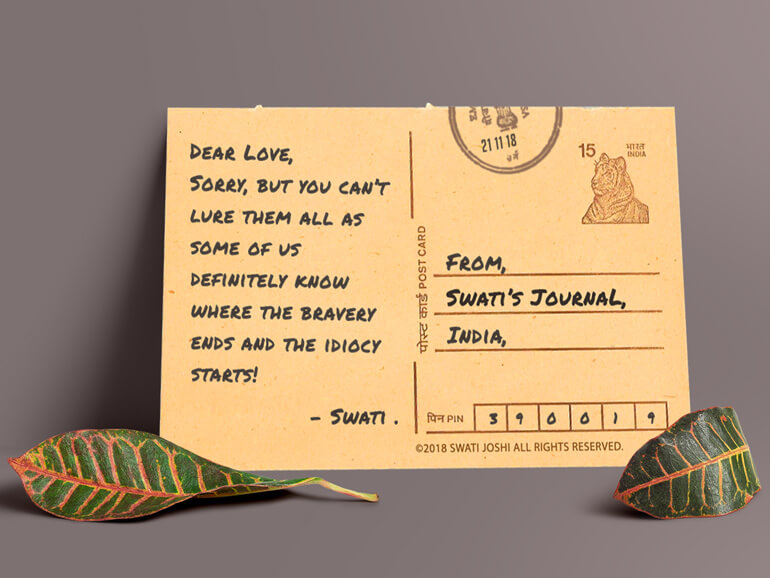 DEAR LOVE,
SORRY, BUT YOU CAN'T
LURE THEM ALL AS
SOME OF US
DEFINITELY KNOW
WHERE THE BRAVERY
ENDS AND THE IDIOCY
STARTS!
- SWATI .
पोस्ट कार्ड POST CARD
21 11 18
15 भारत
INDIA
FROM,
SWATI'S JOURNAL,
INDIA,
पिन PIN 3 9 0 0 1 9
©2018 SWATI JOSHI ALL RIGHTS RESERVED.